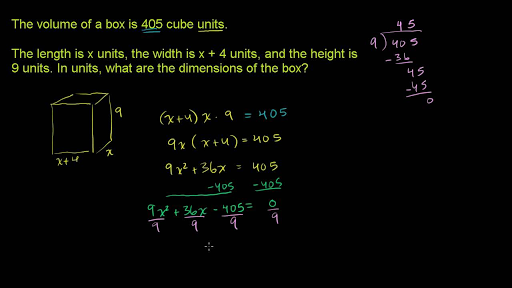 The volume of a box is 405 cube units.
The length is x units, the width is x + 4 units, and the height is
9 units. In units, what are the dimensions of the box?
9
x+4
x
(x+4) x · 9 = 405
9x (x+4) = 405
9x² + 36x = 405
-405 -405
9x² + 36x - 405 = 0
9 9 9 9
45
9) 405
-36
45
-45
0